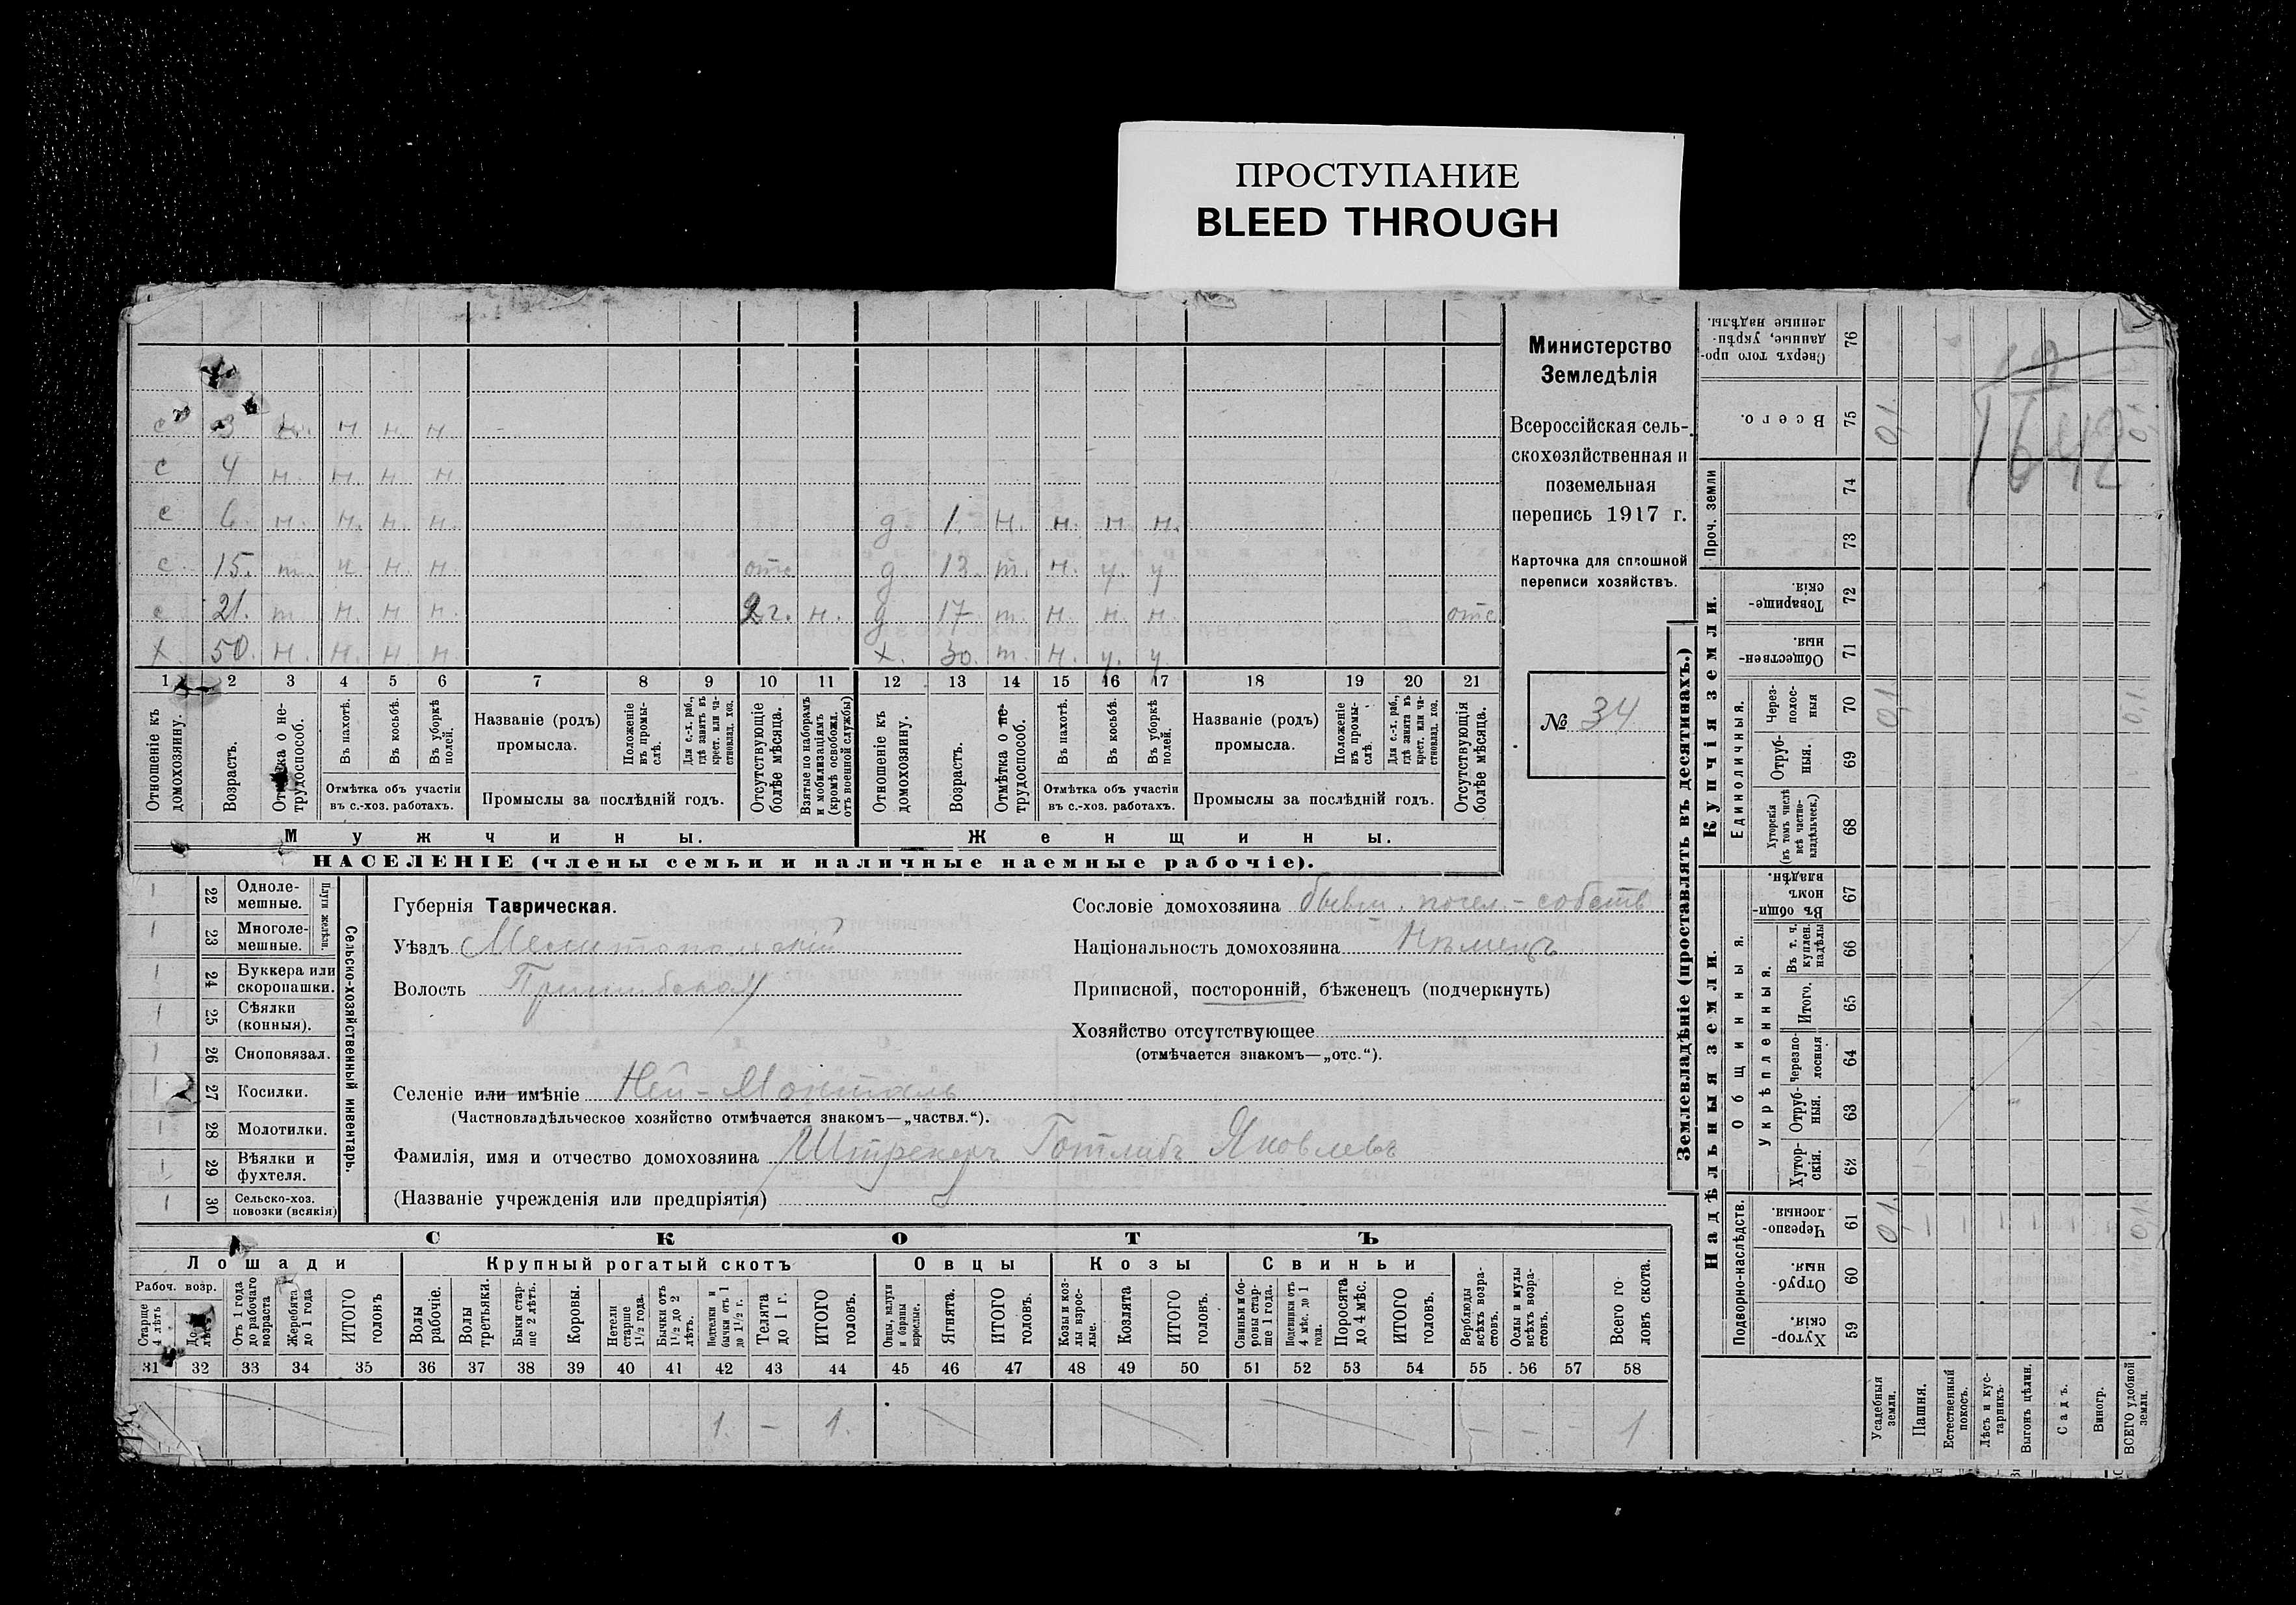 ПРОСТУПАНИЕ
BLEED THROUGH
с 3 н. н н. н.
с 4 н. н. н. н
с 6. н. н. н. н. д. 1. н. н. н н.
с. 15. т. н. н. отс д. 13. т. н. у. у
с 21. т. н. н н. 2 г. н. д 17. т. н. н. н. отс
х 50. н. н. н н х. 30. т. н. у. у
1 2 3 4 5 6 7 8 9 10 11 12 13 14 15 16 17 18 19 20 21
Отношеніе къ домохозяину.
Возрастъ.
Отмѣтка о не-трудоспособ.
Въ пахотѣ.
Въ косьбѣ.
Въ уборкѣ полей.
Отмѣтка объ участіи въ с.-хоз. работахъ.
Названіе (родъ) промысла.
Положеніе въ промыслѣ.
Для с.-х. раб., гдѣ занятъ въ крест. или частновлад. хоз.
Промыслы за послѣдній годъ.
Отсутствующіе болѣе мѣсяца.
Взятые по наборамъ и мобилизаціямъ (кромѣ освобожд. отъ военной службы)
Отношеніе къ домохозяину.
Возрастъ.
Отмѣтка о не-трудоспособ.
Въ пахотѣ.
Въ косьбѣ.
Въ уборкѣ полей.
Отмѣтка объ участіи въ с.-хоз. работахъ.
Названіе (родъ) промысла.
Положеніе въ промыслѣ.
Для с.-х. раб., гдѣ занята въ крест. или частновлад. хоз.
Промыслы за послѣдній годъ.
Отсутствующія болѣе мѣсяца.
Мужчины. Женщины.
НАСЕЛЕНІЕ (члены семьи и наличные наемные рабочіе).
Министерство
Земледѣлія
Всероссійская сель-
скохозяйственная и
поземельная
перепись 1917 г.
Карточка для сплошной
переписи хозяйствъ.
№ 34
22 Одноле-мешные.
23 Многоле-мешные.
Плуги желѣзн.
24 Буккера или скоропашки.
25 Сѣялки (конныя).
26 Сноповязал.
27 Косилки.
28 Молотилки.
29 Вѣялки и фухтеля.
30 Сельско-хоз. повозки (всякія)
Сельско-хозяйственный инвентарь.
Губернія Таврическая.
Уѣздъ Мелитопольскій
Волость Пришибская
Сословіе домохозяина бывш. посел.-собств
Національность домохозяина Нѣмецъ
Приписной, посторонній, бѣженецъ (подчеркнуть)
Хозяйство отсутствующее
(отмѣчается знакомъ—„отс.“).
Селеніе или имѣніе Ней-Монталь
(Частновладѣльческое хозяйство отмѣчается знакомъ—„частвл.“).
Фамилія, имя и отчество домохозяина Штрекеръ Готлибъ Яковлевъ
(Названіе учрежденія или предпріятія)
СКОТЪ
Лошади Крупный рогатый скотъ Овцы Козы Свиньи
Рабоч. возр.
Старше 4 лѣтъ
Отъ 1 года до рабочаго возраста
Жеребята до 1 года
ИТОГО головъ
Волы рабочіе.
Волы третьяки.
Быки стар-ше 2 лѣтъ.
Коровы.
Нетели старше 1½ года.
Бычки отъ 1½ до 2 лѣтъ.
Нетелки и бычки отъ 1 до 1½ г.
Телята до 1 г.
ИТОГО головъ.
Овцы, валухи и бараны взрослые.
Ягнята.
ИТОГО головъ.
Козы и коз-лы взрос-лые.
Козлята
ИТОГО головъ.
Свиньи и бо-ровы стар-ше 1 года.
Подсвинки отъ 4 мѣс. до 1 года.
Поросята до 4 мѣс.
ИТОГО головъ.
Верблюды всѣхъ возра-стовъ.
Ослы и мулы всѣхъ возра-стовъ.
Всего го-ловъ скота.
31 32 33 34 35 36 37 38 39 40 41 42 43 44 45 46 47 48 49 50 51 52 53 54 55 56 57 58
1. — 1. — — — 1
Землевладѣніе (проставлять въ десятинахъ.)
Сверхъ того про-данные, укрѣп-ленные надѣлы. 76
Всего. 75 0,1
Проч. земли 74 73
Купчія земли.
Товарище-скія. 72
Обществен-ныя. 71
Единоличныя.
Через-полос-ныя 70 0,1 0,1
Отруб-ныя. 69
Хуторскія (въ томъ числѣ всѣ частно-владѣльческ.) 68
Надѣльныя земли.
Общинныя.
Въ общин-номъ владѣн. 67
Укрѣпленныя.
Въ т. ч. куплен. надѣлы 66
Итого. 65
Черезпо-лосныя 64
Отруб-ныя. 63
Хутор-скія. 62
Подворно-наслѣдств.
Черезпо-лосныя. 61 0,1. — — — — — — 0,1.
Отруб-ныя. 60
Хутор-скія. 59
Усадебныя земли.
Пашня.
Естественный покосъ.
Лѣсъ и кус-тарникъ.
Выгонъ цѣлин.
Садъ.
Виногр.
ВСЕГО удобной земли.